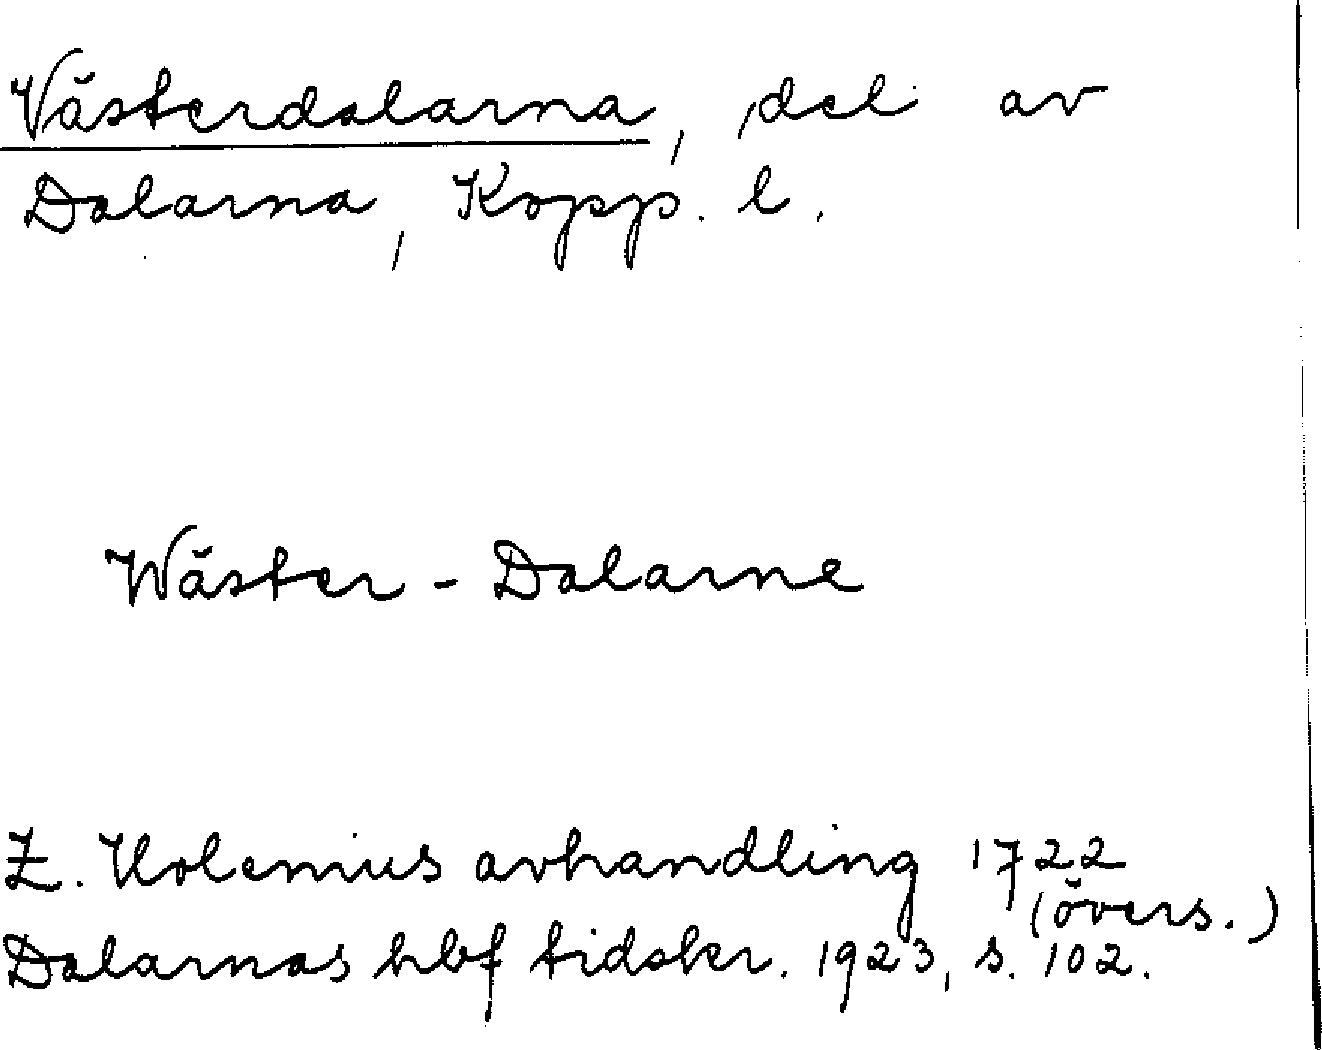 Västerdalarna, del av
Dalarna, Kopp. l.
Wäster-Dalarne
Z. Holenius avhandling 1722
(övers.)
Dalarnas hbf tidskr. 1923, s. 102.